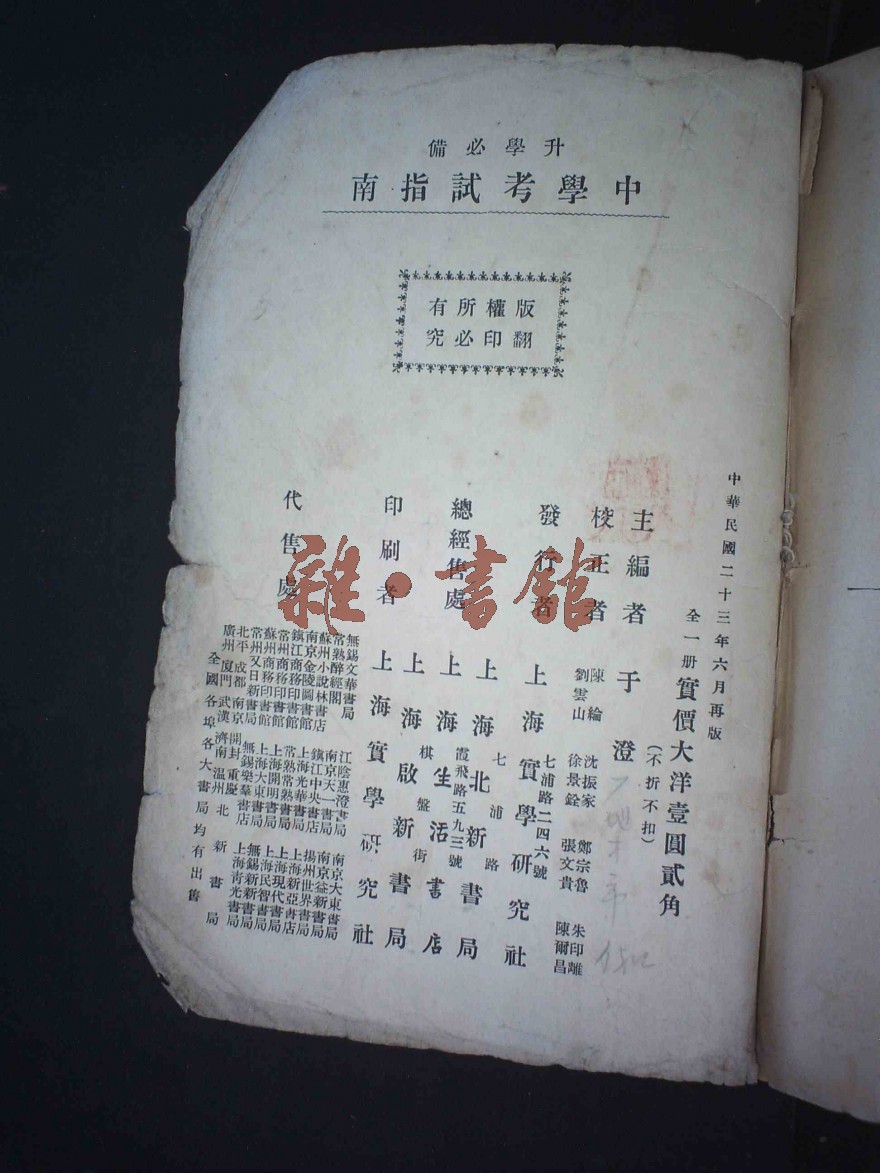 升學必備
中學考試指南
版權所有
翻印必究
中華民國二十三年六月再版
全一册實價大洋壹圓貳角
(不折不扣)
主編者 于澄
校正者 陳綸 沈振家 鄭宗魯 朱印離
劉雲山 徐景銓 張文貴 陳爾昌
發行者 上海實學研究社
七浦路二四六號
總經售處 上海北新書局
七浦路
上海生活書店
霞飛路五九三號
上海啟新書局
棋盤街
印刷者 上海實學研究社
代售處
無錫文華書局 江陰惠澄書局 南京大東書局
常熟醉經閣 南京天一書局 南京益新書局
蘇州小說林書店 鎮江中央書店 揚州世界書局
南京金陵圖書館 上海光華書局 上海新亞書店
鎮江商務印書館 常熟常熟書局 上海現代書局
常州商務印書館 上海開明書局 上海民智書局
蘇州商務印書館 上海大東書局 無錫新新書局
常州又日新書局 無錫樂羣書店 上海青光書局
北平 成都 南京 開封 重慶
廣州 廈門 武漢 濟南 溫州 北新書局
全國各埠各大書局均有出售
雜·書館